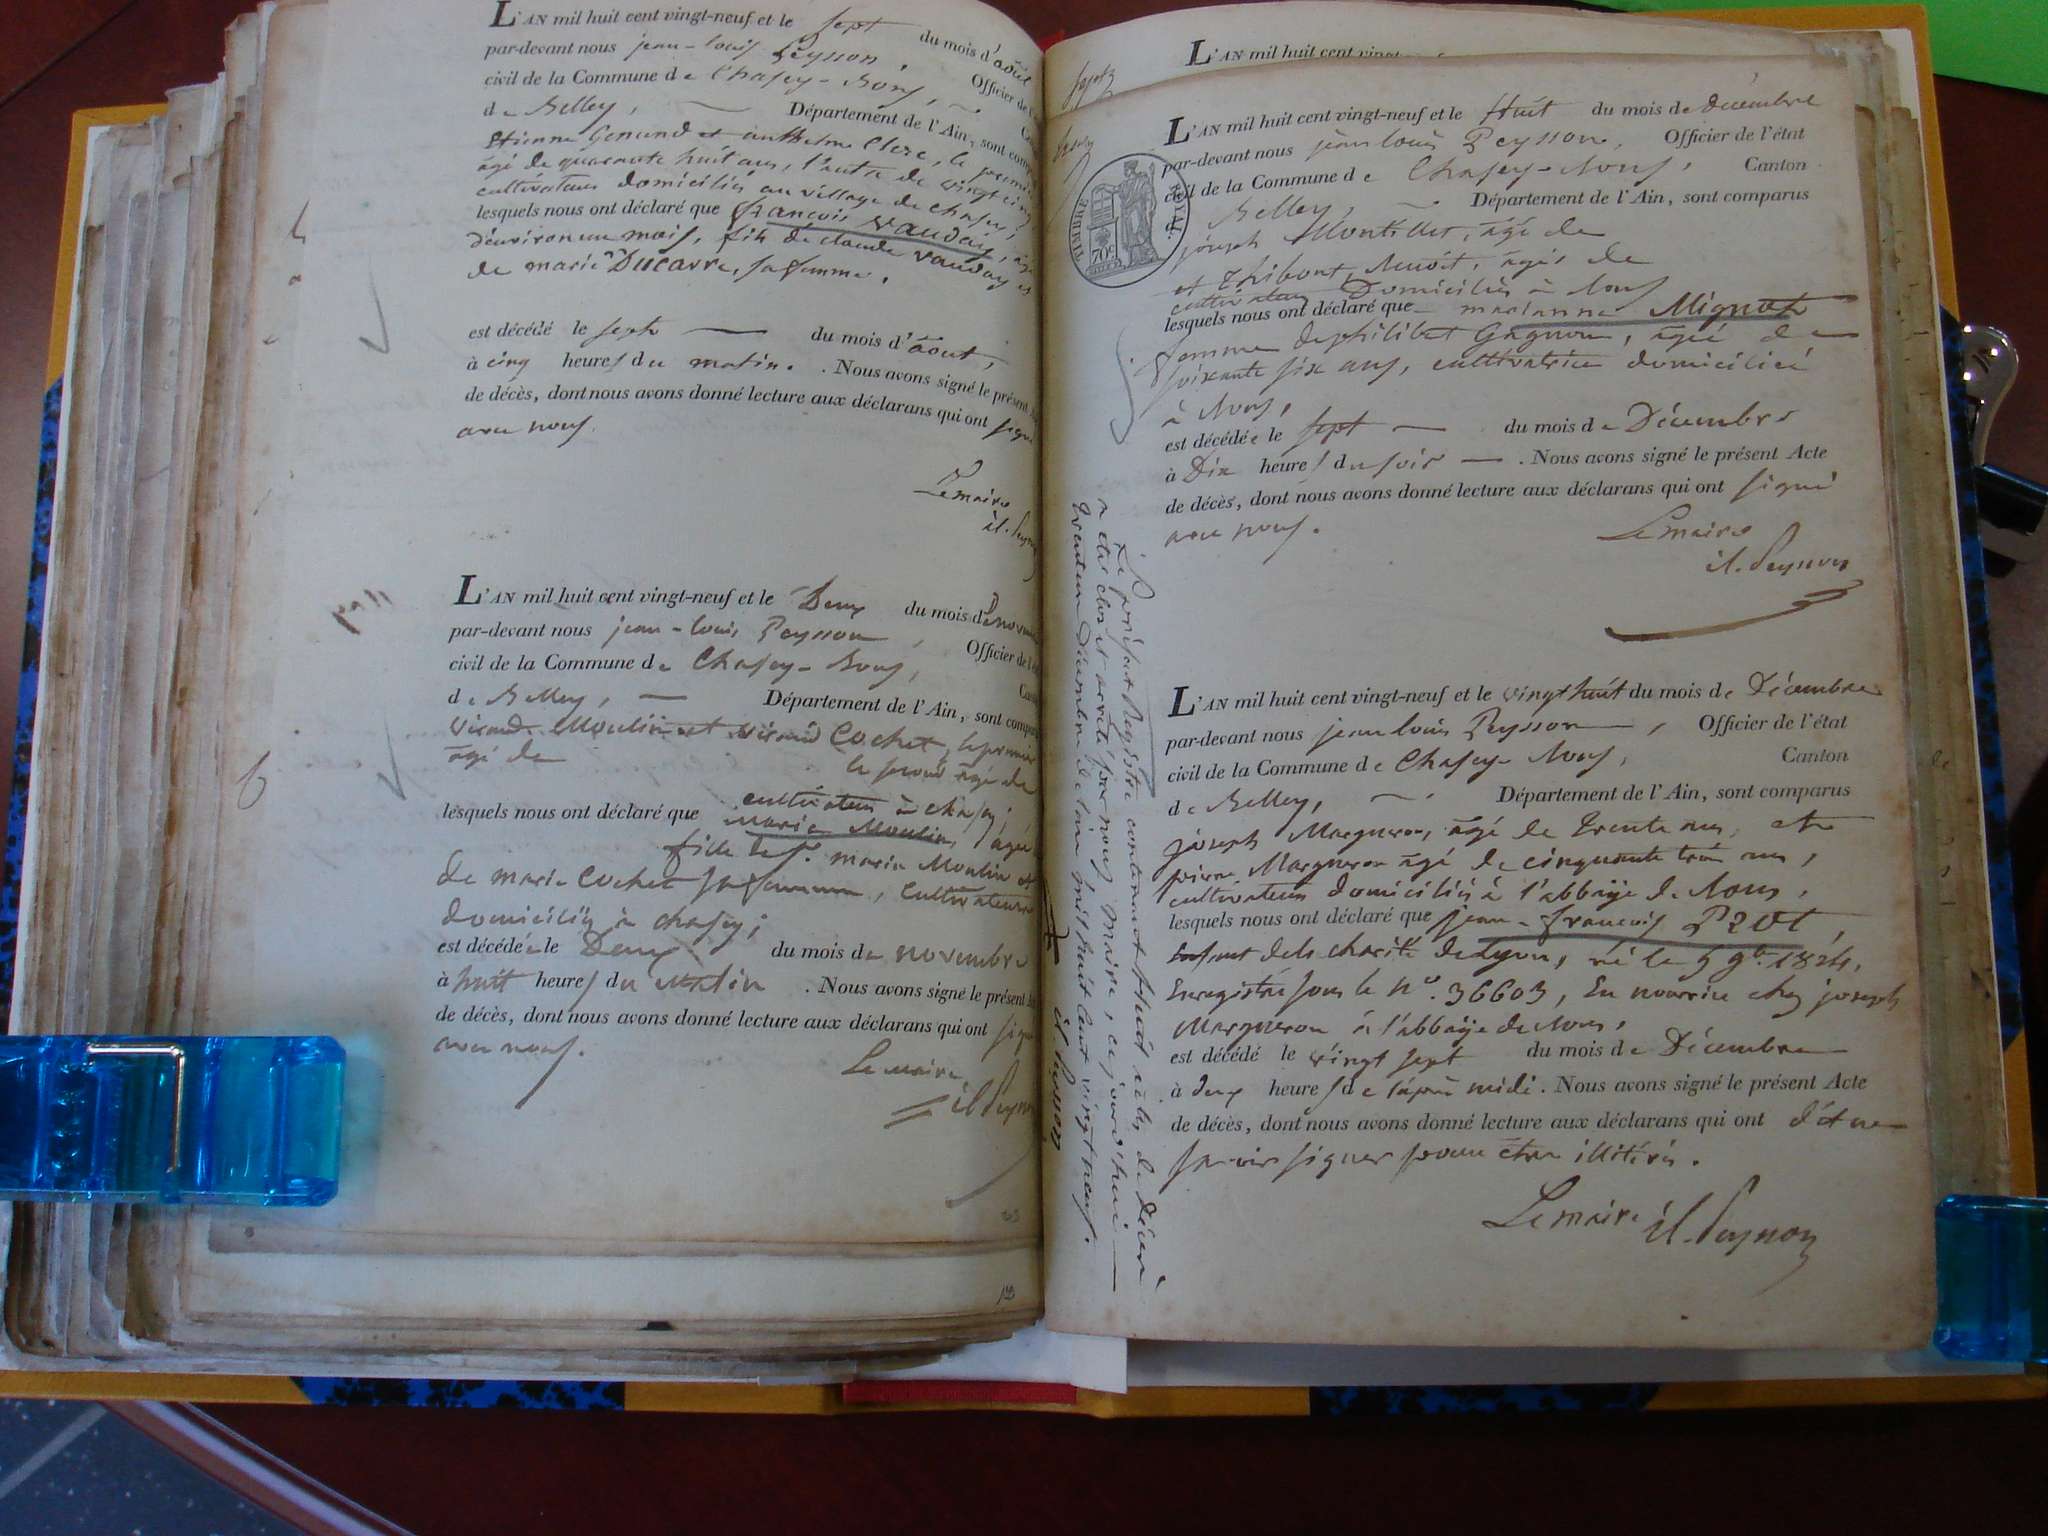 L'AN mil huit cent vingt-neuf et le sept du mois d'août
par-devant nous jean-louis Peysson, Officier de
civil de la Commune de Chasey-Bons,
de Belley, Département de l'Ain, sont comp
Etienne Genund et anthelme Clerc, le premier
âgé de quarante huit ans, l'autre de vingt cinq
cultivateurs domiciliés au village de chasey,
lesquels nous ont déclaré que françois Vauday, âgé
d'environ un mois, fils de claude vauday et
de marie Ducarre, sa femme.
est décédé le sept du mois d'août,
à cinq heures du matin. Nous avons signé le présent
de décès, dont nous avons donné lecture aux déclarans qui ont signé
avec nous.
Le maire
L'AN mil huit cent vingt-neuf et le Deux du mois de novem
par-devant nous jean-louis Peysson, Officier de l'é
civil de la Commune de Chasey-Bons,
de Belley, Département de l'Ain, sont compa
Moulin et Cochet, le premier
âgé de le second âgé de
cultivateurs à chasey,
lesquels nous ont déclaré que Marie Moulin, âgée
fille de marie Moulin et
de marie Cochet sa femme, cultivateurs
domiciliés à chasey;
est décédée le Deux du mois de novembre
à huit heures du matin. Nous avons signé le présent
de décès, dont nous avons donné lecture aux déclarans qui ont signé
avec nous.
Le maire
L'AN mil huit cent vin
TIMBRE ROYAL
70c
L'AN mil huit cent vingt-neuf et le Huit du mois de décembre
par-devant nous jean louis Peysson, Officier de l'état
civil de la Commune de Chasey-Bons, Canton
d Belley, Département de l'Ain, sont comparus
joseph Montillet, âgé de
et Thibout Benoît, âgé de
cultivateurs Domiciliés à Bons
lesquels nous ont déclaré que marianne Mignot
femme de philibert Gagnon, âgée de
soixante six ans, cultivatrice domiciliée
à Bons,
est décédée le sept du mois de Décembre
à Dix heures du soir. Nous avons signé le présent Acte
de décès, dont nous avons donné lecture aux déclarans qui ont signé
avec nous.
Le maire
Le présent Registre contenant Huit actes de Décès
a été clos et arrêté par nous maire, ce jourd'hui
trente un Décembre de l'an mil huit cent vingt neuf.
L'AN mil huit cent vingt-neuf et le vingt huit du mois de Décembre
par-devant nous jean louis Peysson, Officier de l'état
civil de la Commune de Chasey-Bons, Canton
de Belley, Département de l'Ain, sont comparus
joseph Margueron, âgé de trente ans, et
pierre Margueron âgé de cinquante trois ans,
cultivateurs domiciliés à l'abbaÿe de Bons,
lesquels nous ont déclaré que jean-françois
Enfant de la charité de Lyon, né le 5 9bre 1824,
Enregistré sous le n°. 36603, En nourrice chez joseph
Margueron à l'abbaÿe de Bons,
est décédé le vingt sept du mois de Décembre
à deux heures de l'après midi. Nous avons signé le présent Acte
de décès, dont nous avons donné lecture aux déclarans qui ont dit ne
savoir signer pour être illitérés.
Le maire